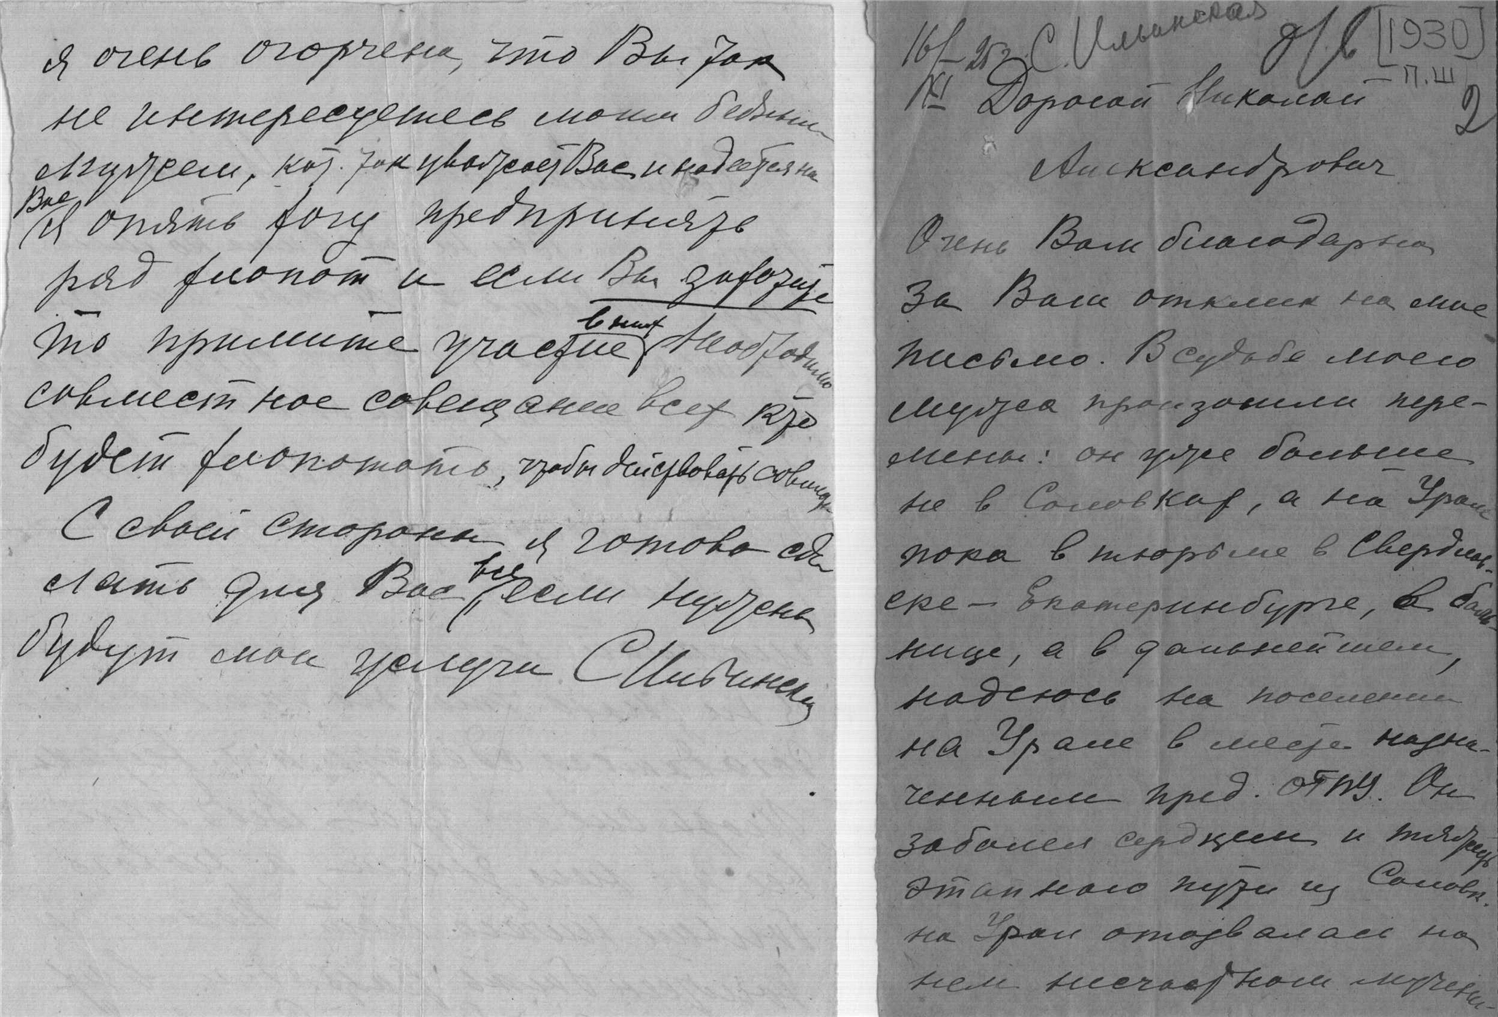 я очень огорчена, что Вы так
не интересуетесь моим бедным
мужем, кот. так уважает Вас и надеется на
Вас
Я опять хочу предпринять
ряд хлопот и если Вы захотите
то примите участие в них Необходимо
совместное совещание всех кто
будет хлопотать, чтобы действовать
С своей стороны я готова сде
лать для Вас все, если нужны
будут мои услуги СИльинская
16/XI 25 г. С. Ильинская
[1930]
П.Ш
2
Дорогой Николай
Александрович
Очень Вам благодарна
за Ваш отклик на мое
письмо. В судьбе моего
мужа произошли пере-
мены: он уже больше
не в Соловках, а на Урале
пока в тюрьме в Свердлов-
ске – Екатеринбурге, в боль-
нице, а в дальнейшем,
надеюсь на поселении
на Урале в месте назна-
ченным пред. ОГПУ. Он
заболел сердцем и тяжесть
этапного пути из Соловк.
на Урал отозвалась на
нем несчастном мучени-